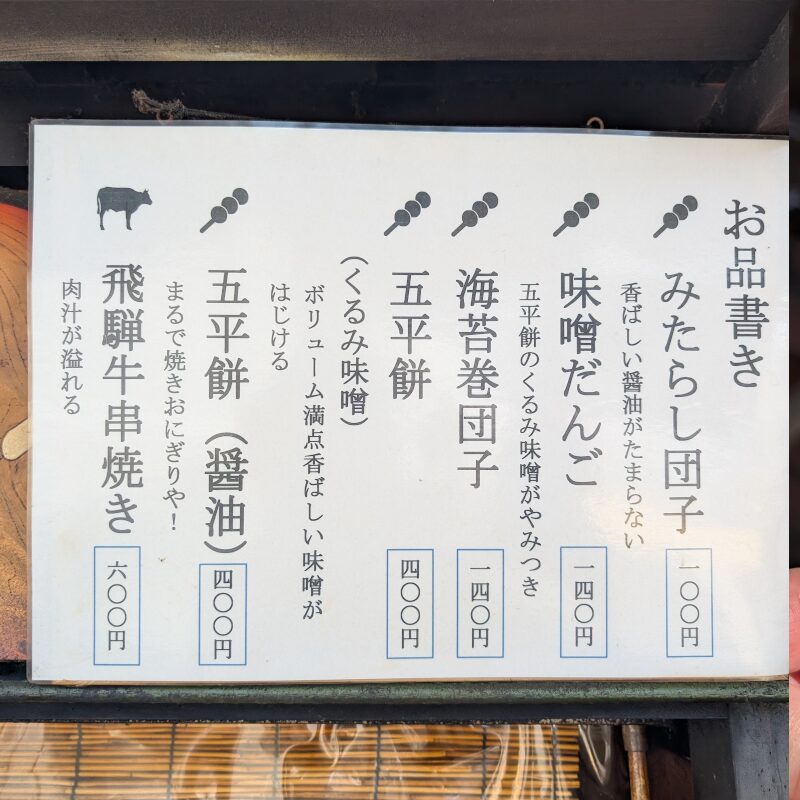 お品書き
みたらし団子
一〇〇円
香ばしい醤油がたまらない
味噌だんご
一四〇円
五平餅のくるみ味噌がやみつき
海苔巻団子
一四〇円
五平餅
四〇〇円
（くるみ味噌）
ボリューム満点香ばしい味噌が
はじける
五平餅（醤油）
四〇〇円
まるで焼きおにぎりや！
飛騨牛串焼き
六〇〇円
肉汁が溢れる